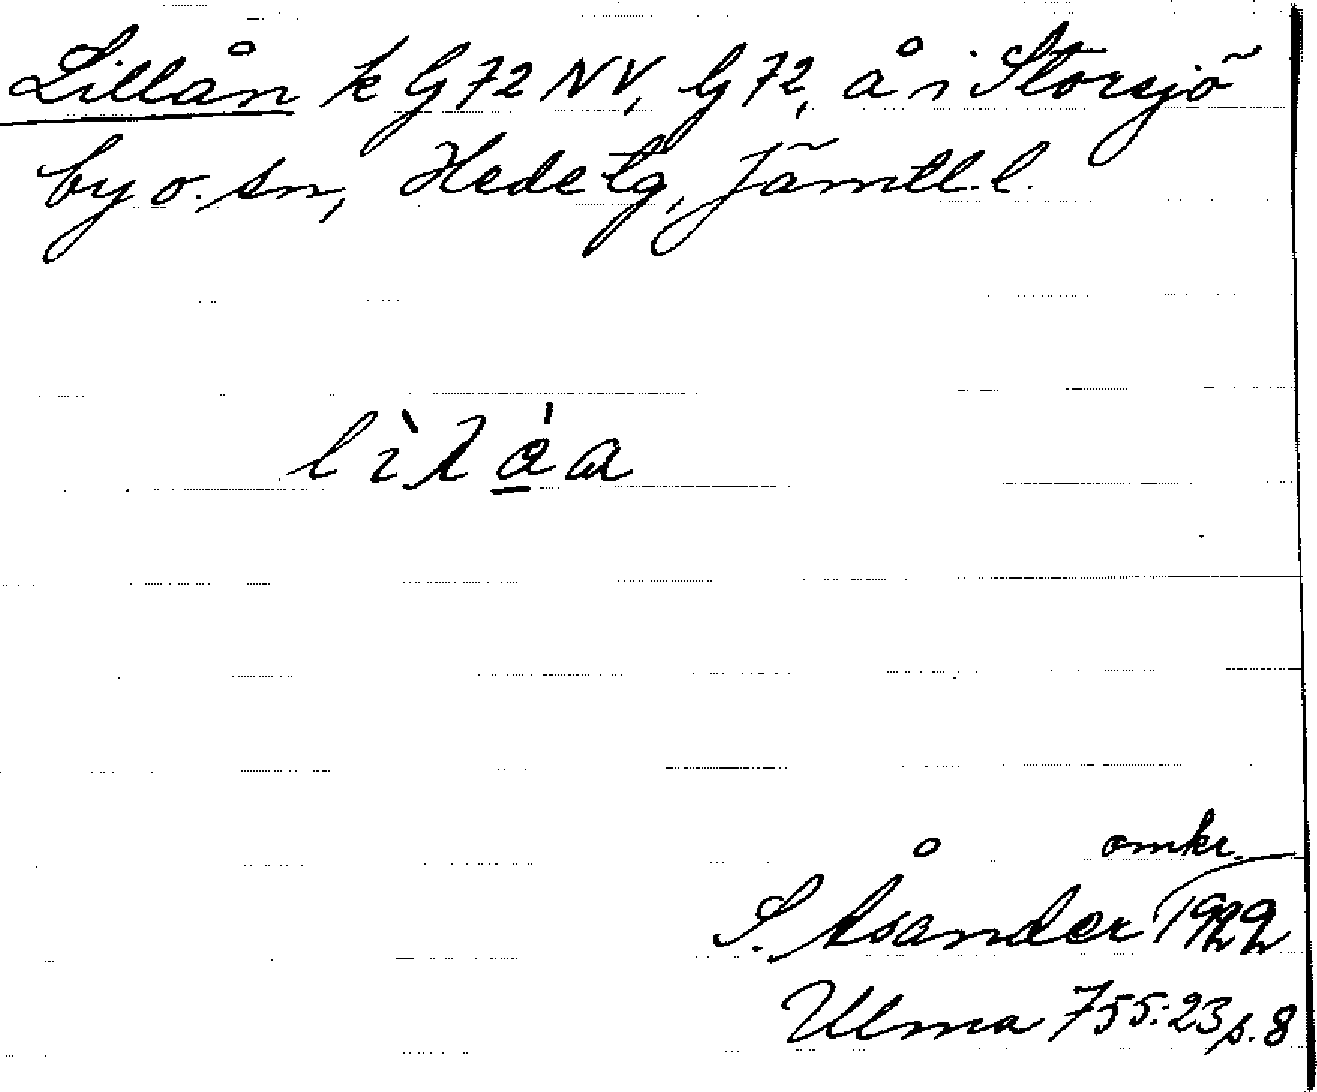 Lillån k G 72 NV, G 72, å i Storsjö
by o. sn, Hede tg, Jämtl. l.
omkr.
S. Åsander 1922
Ulma 755:23 s. 8